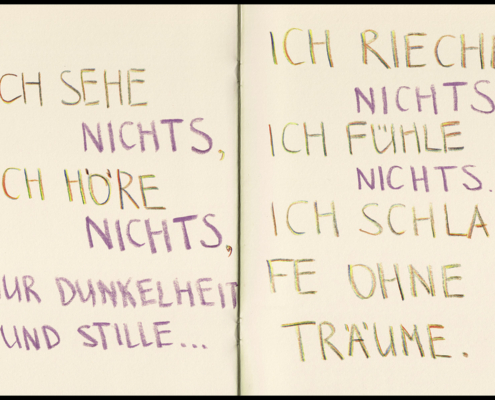 CH SEHE
NICHTS,
CH HÖRE
NICHTS,
NUR DUNKELHEIT
UND STILLE...
ICH RIECHE
NICHTS
ICH FÜHLE
NICHTS.
ICH SCHLA
FE OHNE
TRÄUME.